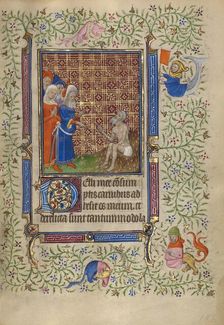 Pelli mee cōsum
ptis carnibus ad
hesit os meum, et
derelicta sunt tantummodo la